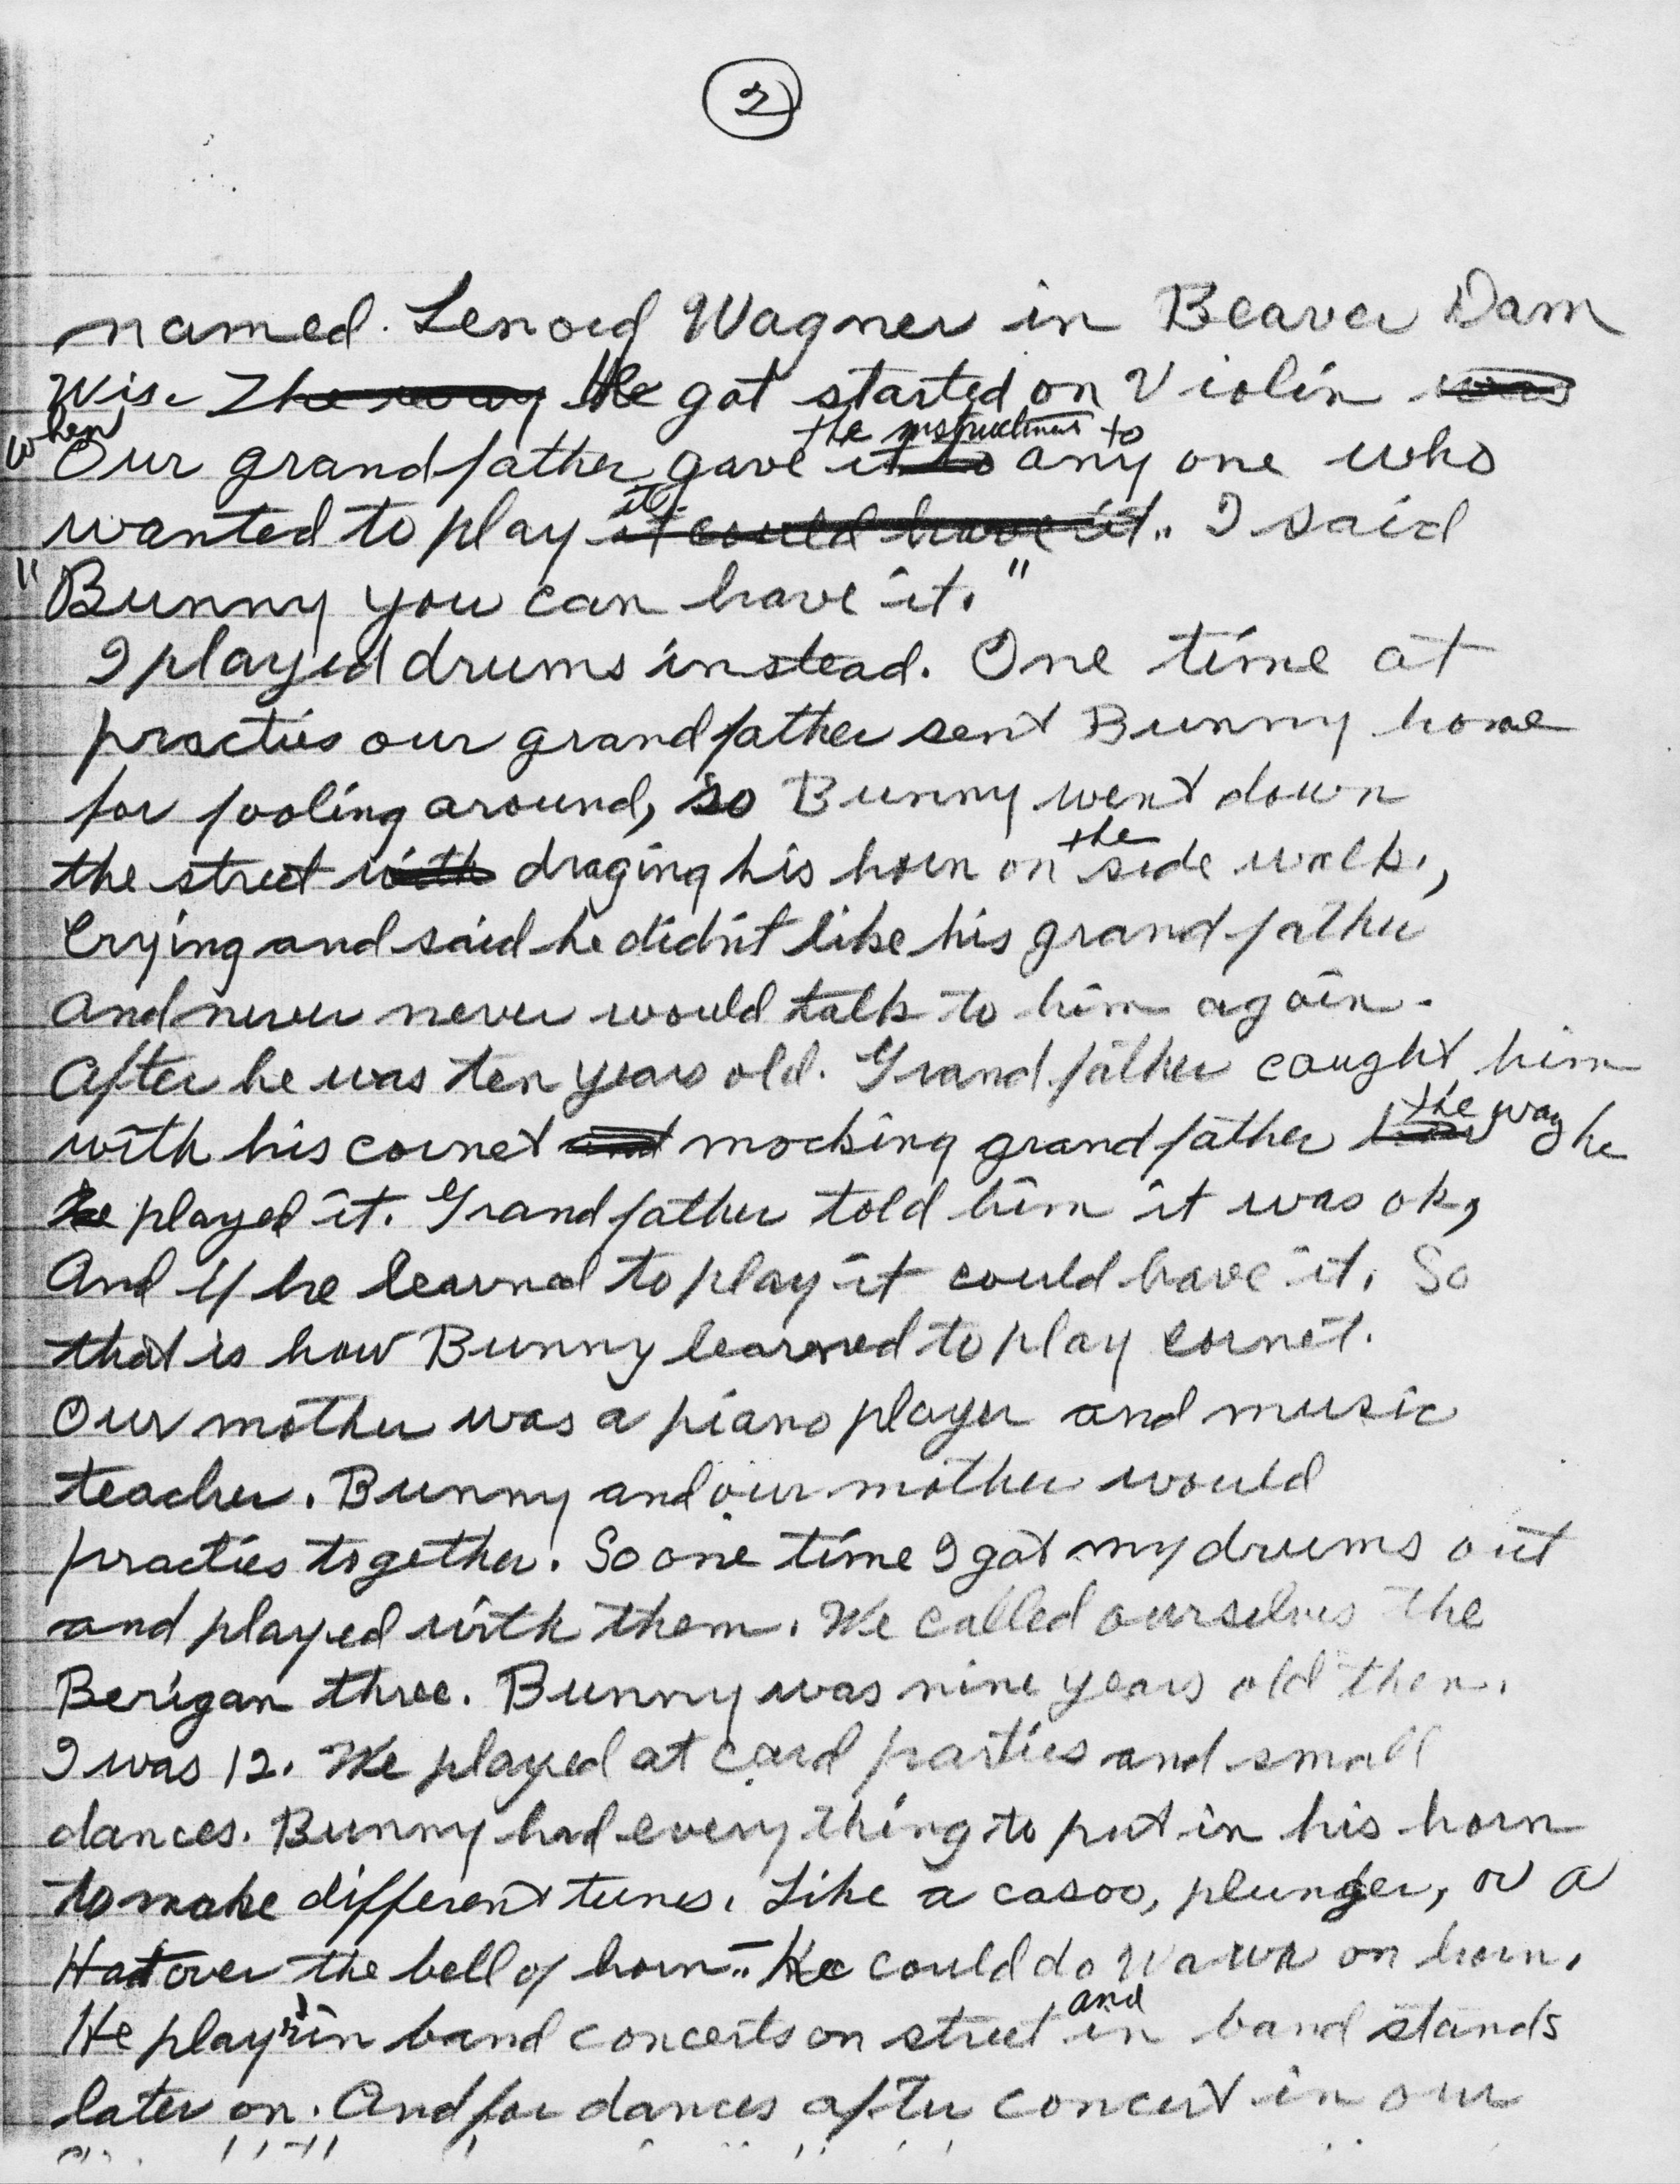 2
named. Lenord Wagner in Beaver Dam
Wis. The way He got started on Violin was
when Our grandfather gave it to the instrument to any one who
wanted to play it it could have it.. I said
"Bunny you can have it."
I played drums instead. One time at
practies our grandfather sent Bunny home
for fooling around, so Bunny went down
the street with draging his horn on the side walk.,
Crying and said he didn't like his grandfather
and never never would talk to him again.
After he was ten years old. Grandfather caught him
with his cornet and mocking grandfather how the way he
he played it. Grandfather told him it was ok,
And if he learned to play it could have it. So
that is how Bunny learned to play cornet.
Our mother was a piano player and music
teacher. Bunny and our mother would
practies together. So one time I got my drums out
and played with them. We called ourselves the
Berigan three. Bunny was nine years old then.
I was 12. We played at card parties and small
dances. Bunny had everything to put in his horn
to make different tunes. Like a casoo, plunger, or a
Hat over the bell of horn.. He could do Wa wa on horn.
He play'd in band concerts on street and in band stands
later on. And for dances after concert in our